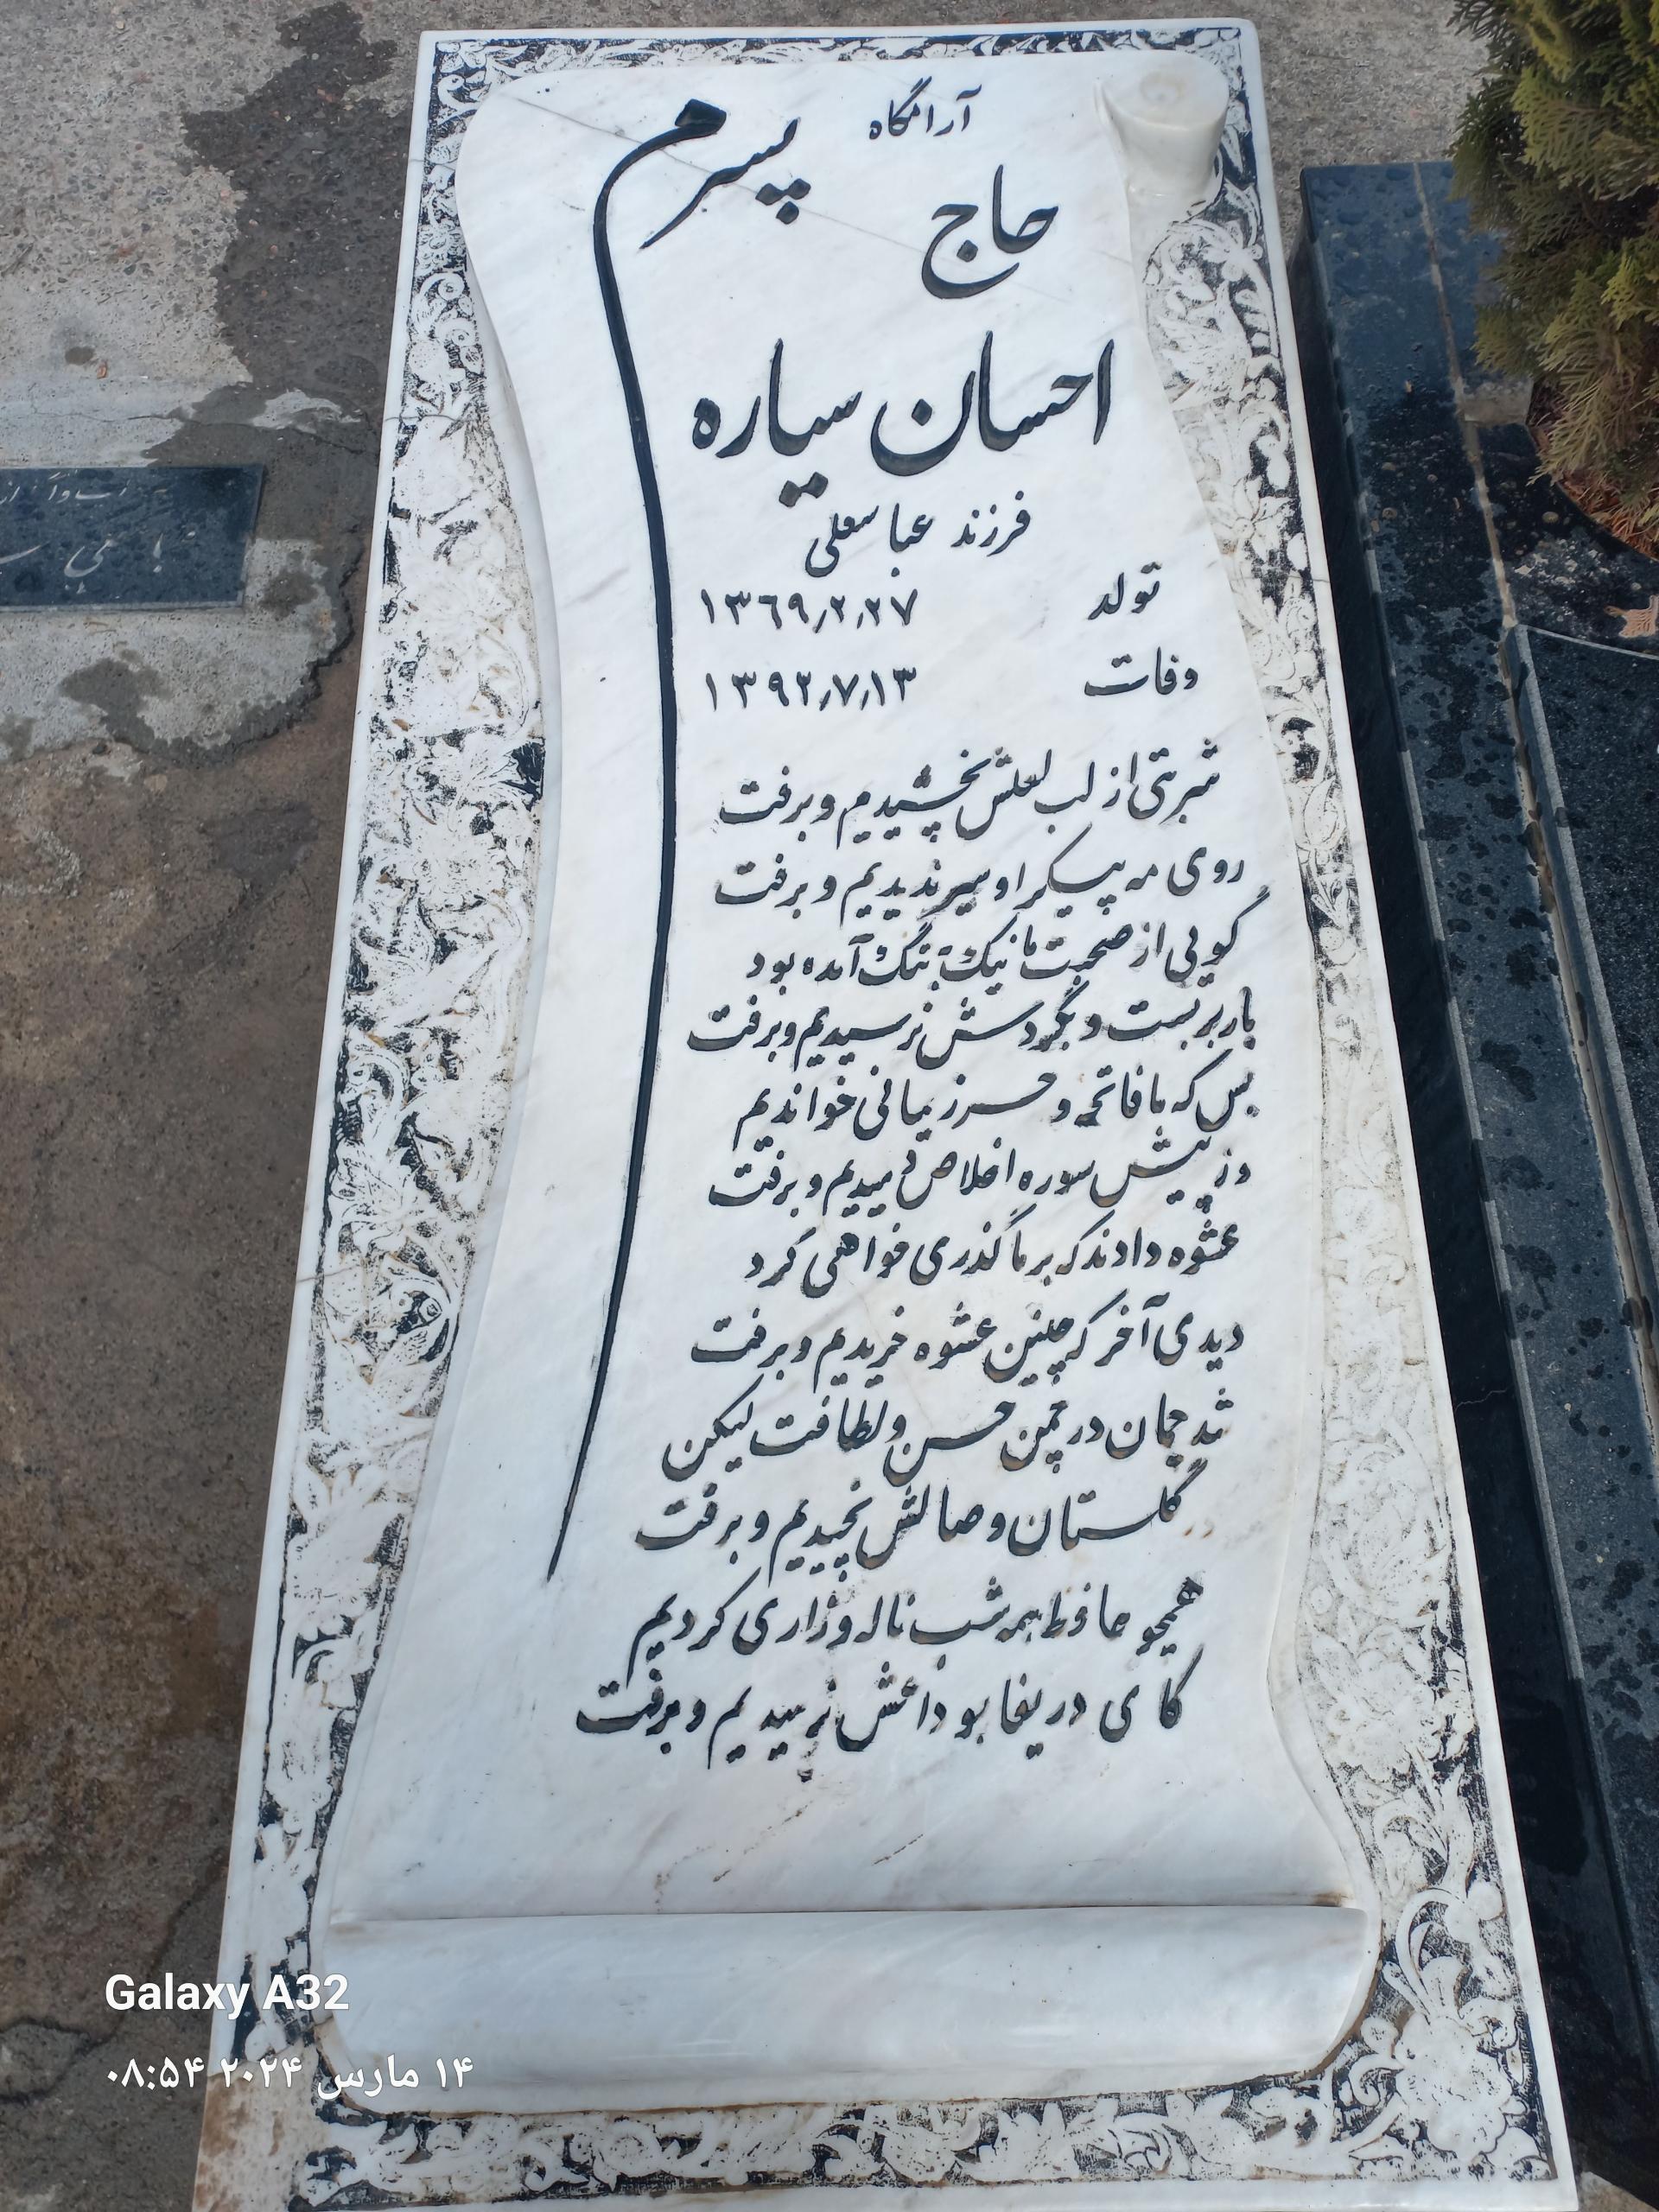 آرامگاه
پسرم
حاج
احسان سیاره
فرزند عباسعلی
تولد ۱۳۶۹٫۲٫۲۷
وفات ۱۳۹۲٫۷٫۱۳
شربتی از لب لعلش نچشیدیم و برفت
روی مه پیکر او سیر ندیدیم و برفت
گویی از صحبت ما نیک به تنگ آمده بود
بار بربست و بگردش نرسیدیم و برفت
بس که ما فاتحه و حرز یمانی خواندیم
وز پیش سوره اخلاص دمیدیم و برفت
عشوه دادند که بر ما گذری خواهی کرد
دیدی آخر که چنین عشوه خریدیم و برفت
شد چمان در چمن حسن و لطافت لیکن
گلستان وصالش نچیدیم و برفت
همچو حافظ همه شب ناله و زاری کردیم
کای دریغا بوداعش نرسیدیم و برفت
Galaxy A32
۱۴ مارس ۲۰۲۴ ۰۸:۵۴